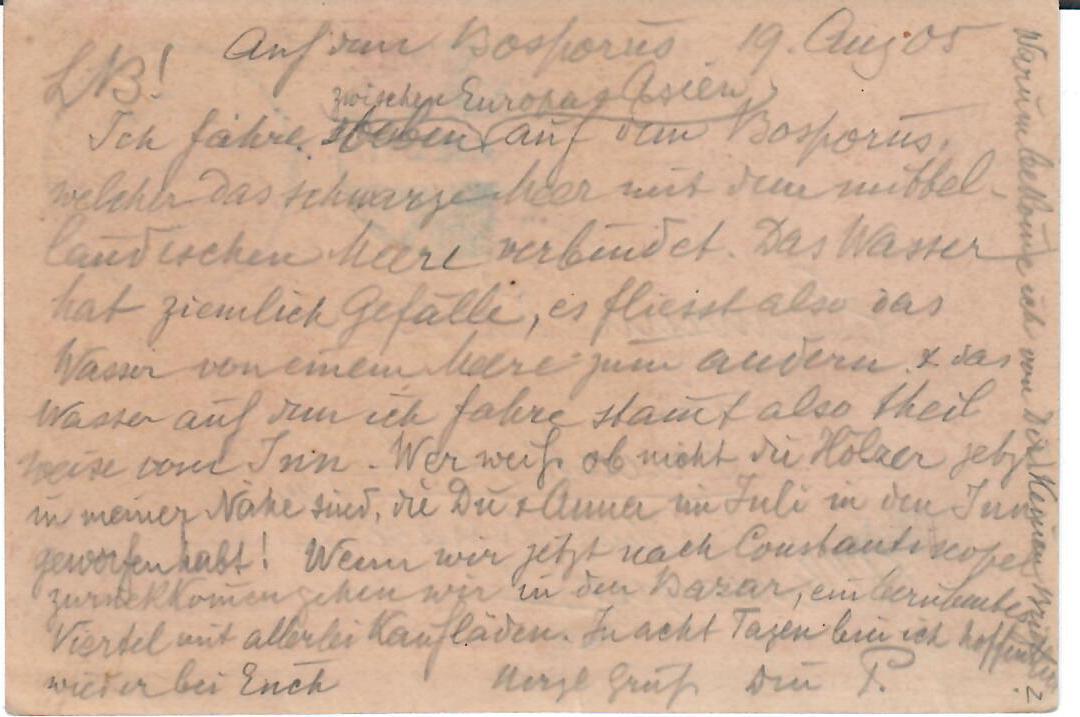 Auf dem Bosporus 19. Aug 05
LB!
zwischen Europa & Asien
Ich fahre soeben auf dem Bosporus,
welcher das schwarze Meer mit dem mittel-
ländischen Meere verbindet. Das Wasser
hat ziemlich Gefälle, es fliesst also das
Wasser von einem Meere zum andern & das
Wasser auf dem ich fahre stamt also theil
weise vom Inn. Wer weiß ob nicht die Hölzer jetzt
in meiner Nähe sind, die Du & Anner im Juli in den Inn
geworfen habt! Wenn wir jetzt nach Constantinopel
zurückkomen gehen wir in den Bazar, ein berühmtes
Viertel mit allerlei Kaufläden. In acht Tagen bin ich hoffentl.
wieder bei Euch Herzl Gruß Dein P.
Warum bekome ich von Dir keinen